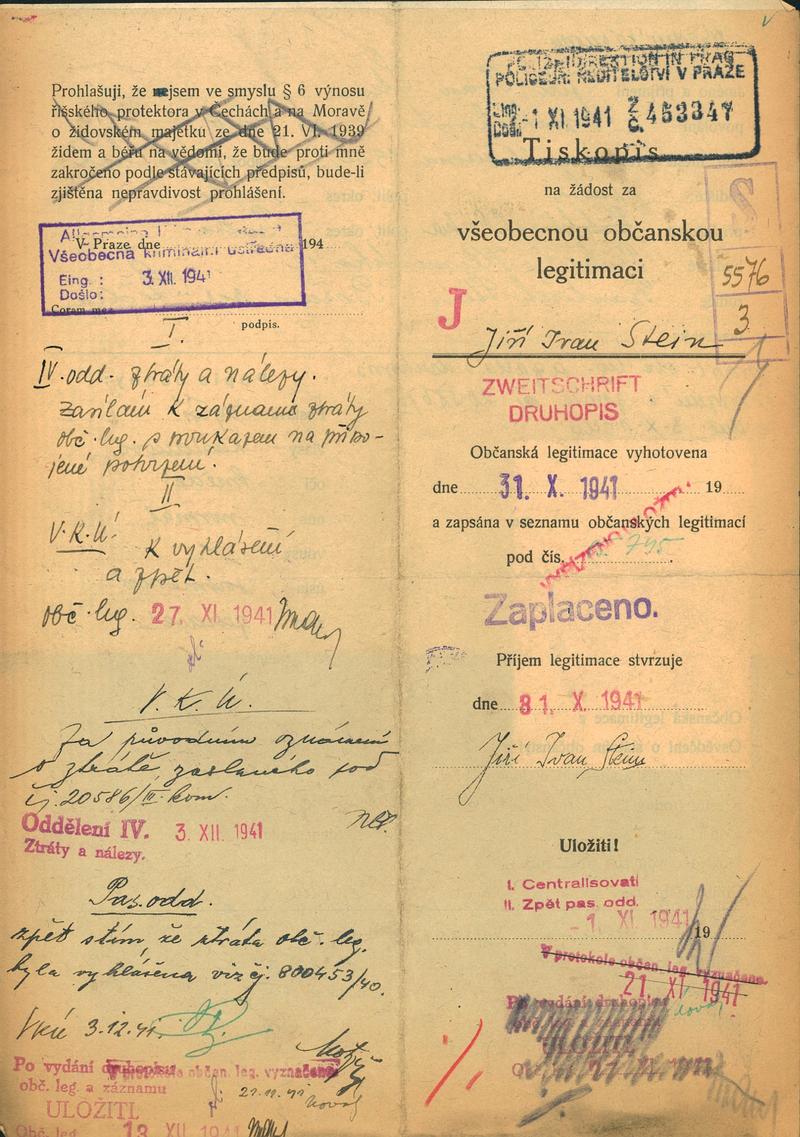 Prohlašuji, že nejsem ve smyslu § 6 výnosu
říšského protektora v Čechách a na Moravě
o židovském majetku ze dne 21. VI. 1939
židem a béřu na vědomí, že bude proti mně
zakročeno podle stávajících předpisů, bude-li
zjištěna nepravdivost prohlášení.
V Praze dne 194
Všeobecná kriminální ústředna
Eing.: 3. XII. 1941
Došlo:
Coram me:
podpis.
I.
IV. odd. ztráty a nálezy.
Zasílám k záznamu ztráty
obč. leg. s poukazem na připo-
jené potvrzení.
II
V.K.Ú.
k vyhlášení
a zpět.
obč. leg. 27. XI. 1941
V. K. Ú.
Za původním oznámením
o ztrátě, zaslaného pod
čj. 20586/III. kom.
Oddělení IV. 3. XII. 1941
Ztráty a nálezy.
Pas. odd.
zpět s tím, že ztráta obč. leg.
byla vyhlášena viz čj. 800453/40.
VKÚ 3.12.41.
Po vydání druhopisu
V protokole občan. leg. vyznačeno
obč. leg. a záznamu
ULOŽITI
Obč. leg. 13. XII. 1941
POLIZEIDIREKTION IN PRAG
POLICEJNÍ ŘEDITELSTVÍ V PRAZE
Došlo -1 XI. 1941 Č. 453347
Tiskopis
na žádost za
všeobecnou občanskou
legitimaci
S
5576
3
J
Jiří Ivan Stein
ZWEITSCHRIFT
DRUHOPIS
Občanská legitimace vyhotovena
dne 31. X. 1941 19
a zapsána v seznamu občanských legitimací
pod čís. 795
Zaplaceno.
Příjem legitimace stvrzuje
dne 31. X. 1941
Jiří Ivan Stein
Uložiti!
I. Centralisovati
II. Zpět pas. odd.
-1. XI. 1941 19
V protokole občan. leg. vyznačeno
21. XI 1941
Po vydání druhopisu